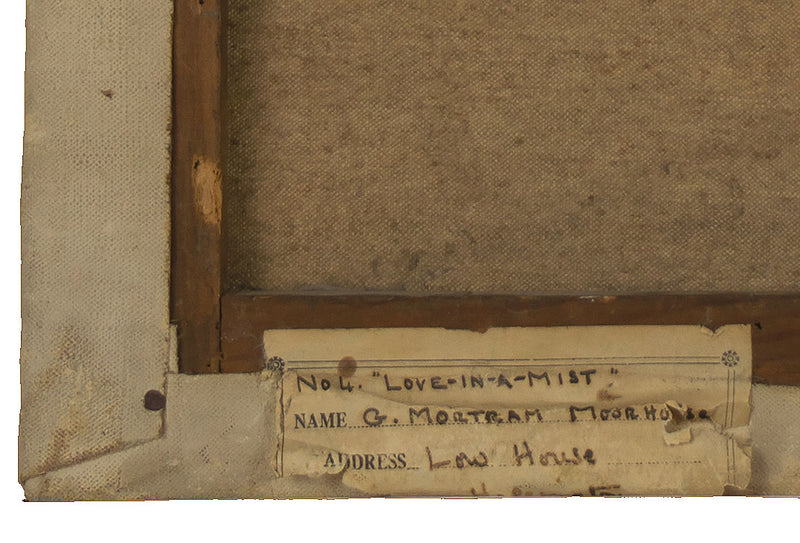 No 4. "LOVE-IN-A-MIST"
NAME G. MORTRAM MOORHOUSE
ADDRESS Low House